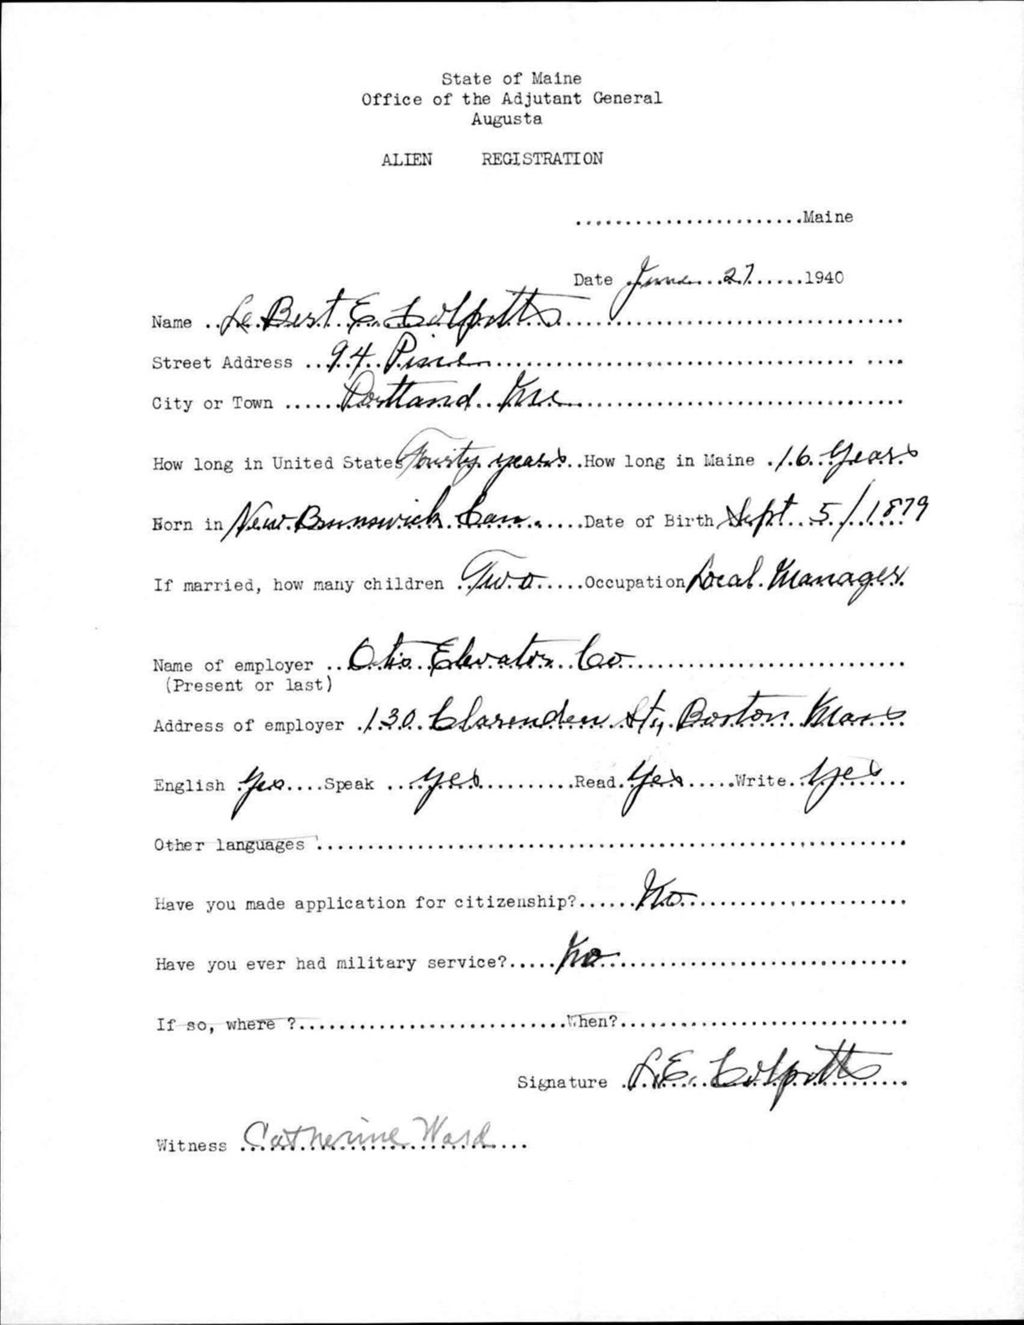 State of Maine
Office of the Adjutant General
Augusta
ALIEN REGISTRATION
.......................Maine
Date June 27 1940
Name Le Best E Colpitts
Street Address 94 Pine
City or Town Portland Me
How long in United States Fourty years How long in Maine 16 Years
Born in New Brunswick Can. Date of Birth Sept 5/1879
If married, how many children Two Occupation Local Manager
Name of employer Otis Elevator Co
(Present or last)
Address of employer 130 Clarenden St, Boston Mass
English Yes Speak yes Read Yes Write Yes
Other languages
Have you made application for citizenship? No
Have you ever had military service? No
If so, where ? When?
Signature L.E. Colpitts
Witness Catherine Ward